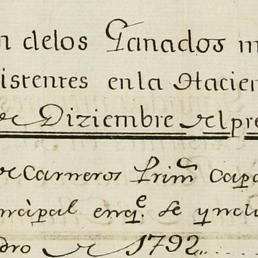 n delos Ganados m
istentes en la Hacien
de Diziembre del pre
de Carneros Prim̃ Capa
rincipal enq.e se yncl
dro de 1792